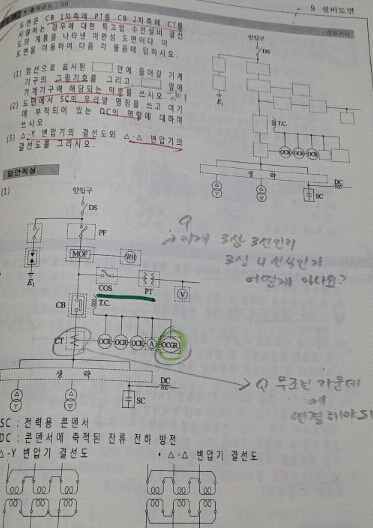 9. 설비도면
도면은 CB 1차측에 PT를 CB 2차측에 CT를
시설하는 경우에 대한 특고압 수전설비 결선
도의 계통을 나타낸 미완성 도면이다. 이
도면을 이용하여 다음 각 물음에 답하시오.
(1) 점선으로 표시된 안에 들어갈 기계
기구의 그림기호를 그리고 옆에
기계기구에 해당되는 약호를 쓰시오.
(2) 도면에서 SC의 우리말 명칭을 쓰고 여기
에 부착되어 있는 DC의 역할에 대하여
쓰시오.
(3) △-Y 변압기의 결선도와 △-△ 변압기의
결선도를 그리시오.
인입구
DS
E₁
T.C.
OCR
OCR
OCR
생 략
DC
SC
답안작성
(1)
인입구
DS
PF
MOF
WH
E₁
COS
PT
V
CB
T.C.
CT
OCR
OCR
OCR
A
OCGR
생 략
DC
SC
Q
이게 3상 3선인지
3상 4선식인지
어떻게 아나요?
Q 무조건 가운데
에
연결해야
SC : 전력용 콘덴서
DC : 콘덴서에 축적된 잔류 전하 방전
△-Y 변압기 결선도
• △-△ 변압기 결선도